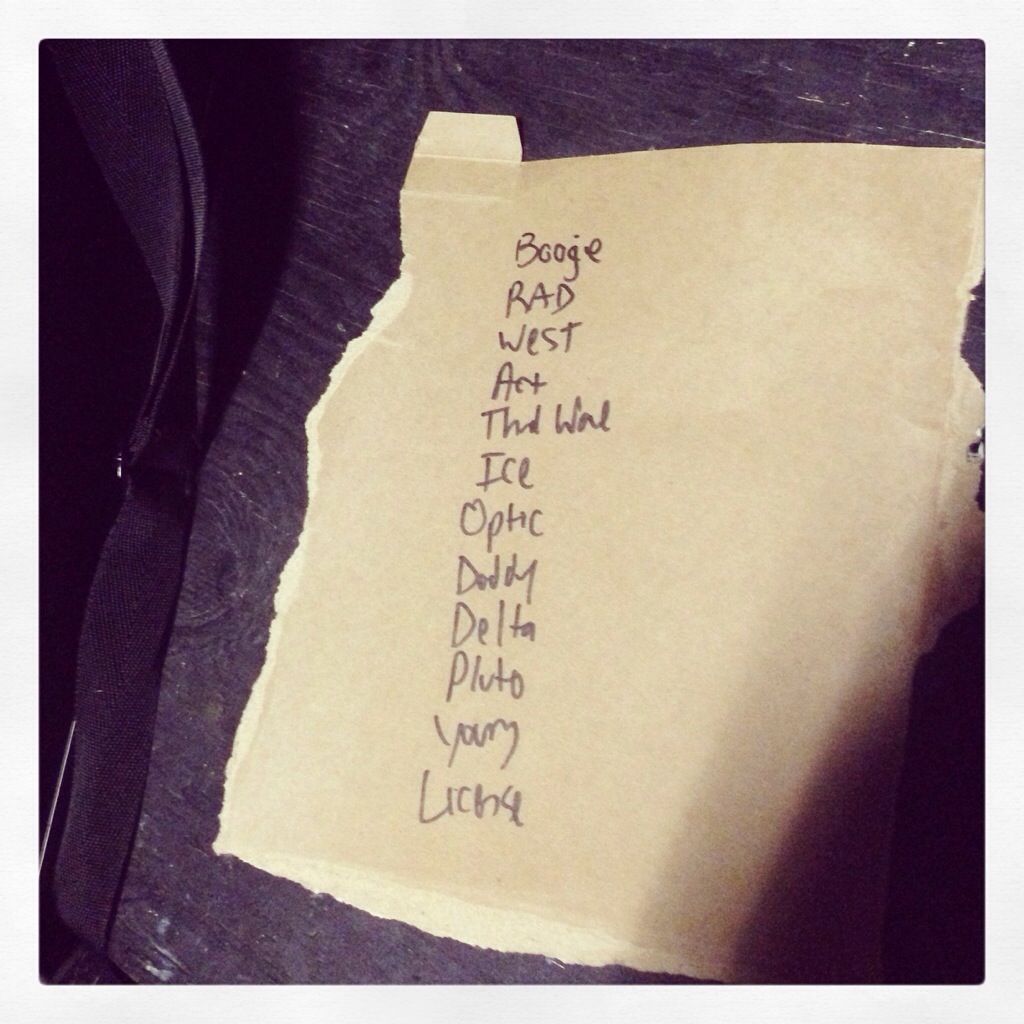 Boogie
RAD
West
Act
Third World
Ice
Optic
Daddy
Delta
Pluto
Young
License